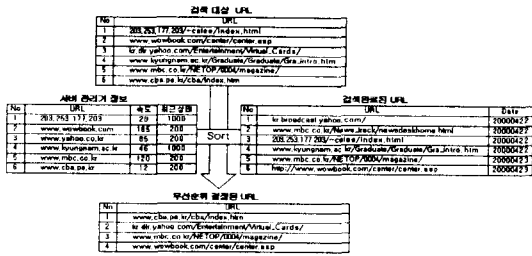 검색 대상 URL
No URL
1 203.253.177.203/~calee/index.html
2 www.wowbook.com/center/center.asp
3 kr.dir.yahoo.com/Entertainment/Virtual_Cards/
4 www.kyungnam.ac.kr/Graduate/Graduate/Gra_intro.htm
5 www.mbc.co.kr/NETOP/0004/magazine/
6 www.cba.pe.kr/cba/index.htm
서버 관리기 정보
No URL 속도 최근상황
1 203.253.177.203 20 1000
2 www.wowbook.com 185 200
3 www.yahoo.co.kr 85 200
4 www.kyungnam.ac.kr 46 1000
5 www.mbc.co.kr 120 200
6 www.cba.pe.kr 12 200
Sort
검색완료된 URL
No URL Date
1 kr.broadcast.yahoo.com/ 20000422
2 www.mbc.co.kr/News_desk/newsdeskhome.html 20000422
3 203.253.177.203/~calee/index.html 20000422
4 www.kyungnam.ac.kr/Graduate/Graduate/Gra_intro.htm 20000422
5 www.mbc.co.kr/NETOP/0004/magazine/ 20000423
6 http://www.wowbook.com/center/center.asp 20000423
우선순위 결정된 URL
No URL
1 www.cba.pe.kr/cba/index.htm
2 kr.dir.yahoo.com/Entertainment/Virtual_Cards/
3 www.mbc.co.kr/NETOP/0004/magazine/
4 www.wowbook.com/center/center.asp